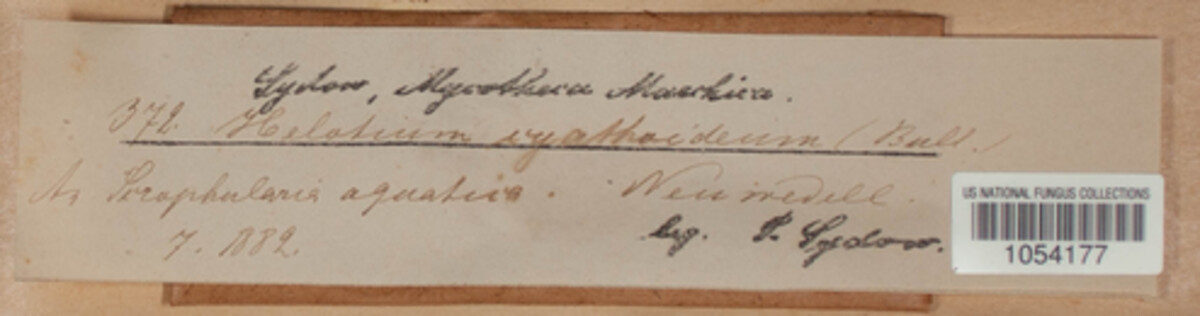 Sydow, Mycotheca Marchica.
372. Helotium cyathoideum (Bull.)
An Scrophularia aquatica. Neuwedell.
7. 1882.
leg. P. Sydow.
US NATIONAL FUNGUS COLLECTIONS
1054177